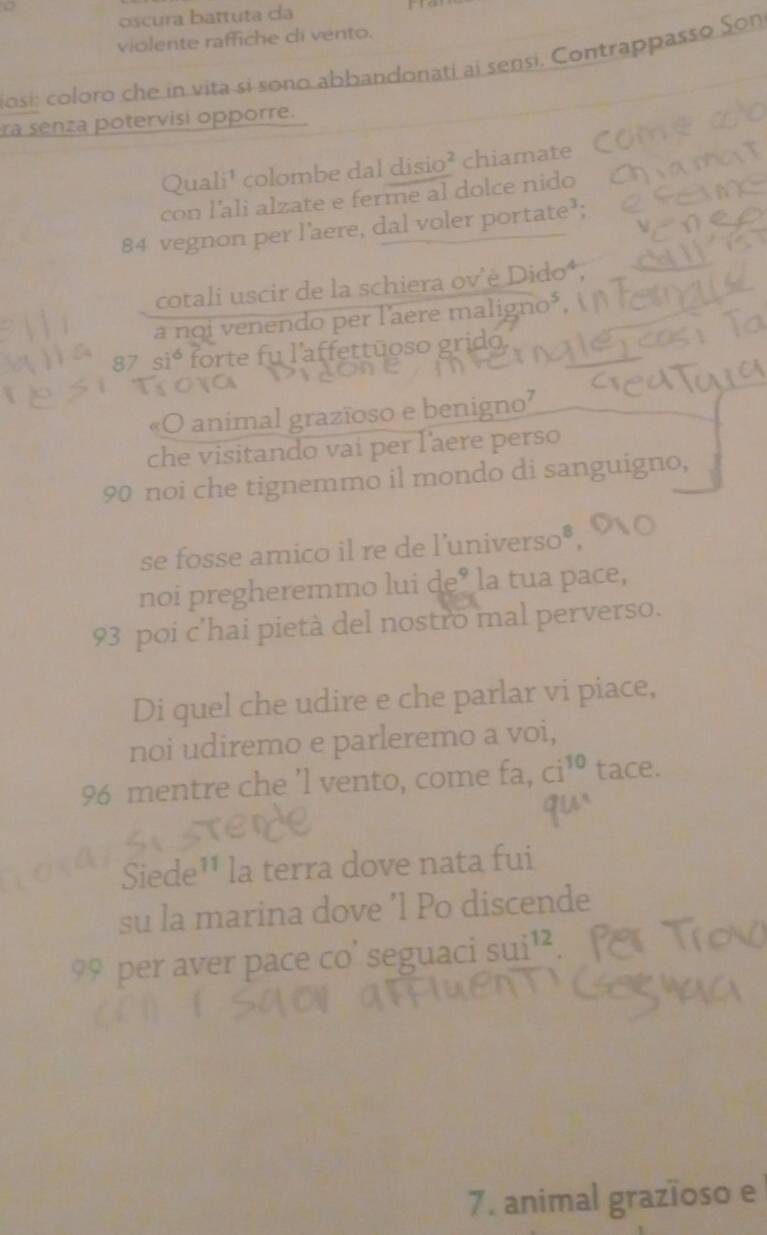 oscura battuta da
violente raffiche di vento.
iosi: coloro che in vita si sono abbandonati ai sensi. Contrappasso Son
ra senza potervisi opporre.
Quali¹ colombe dal disio² chiamate
come
con l'ali alzate e ferme al dolce nido
chiamat
84 vegnon per l'aere, dal voler portate³;
e ferme
cotali uscir de la schiera ov'è Dido⁴,
dall'ist
a noi venendo per l'aere maligno⁵,
infernale
87 sì⁶ forte fu l'affettüoso grido.
si Trova Didone infernale, così Ta
creatura
«O animal grazïoso e benigno⁷
che visitando vai per l'aere perso
90 noi che tignemmo il mondo di sanguigno,
se fosse amico il re de l'universo⁸,
DIO
noi pregheremmo lui de⁹ la tua pace,
per
93 poi c'hai pietà del nostro mal perverso.
Di quel che udire e che parlar vi piace,
noi udiremo e parleremo a voi,
96 mentre che 'l vento, come fa, ci¹⁰ tace.
qui
si stende
Siede¹¹ la terra dove nata fui
su la marina dove 'l Po discende
99 per aver pace co' seguaci sui¹².
Per Trova
con i suoi affluenti (seguaci
7. animal grazïoso e